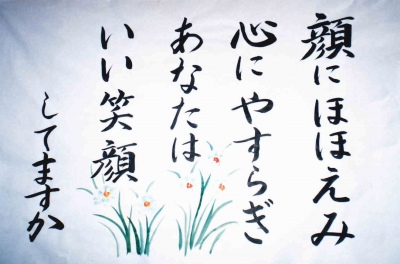 顔にほほえみ
心にやすらぎ
あなたは
いい笑顔
してますか